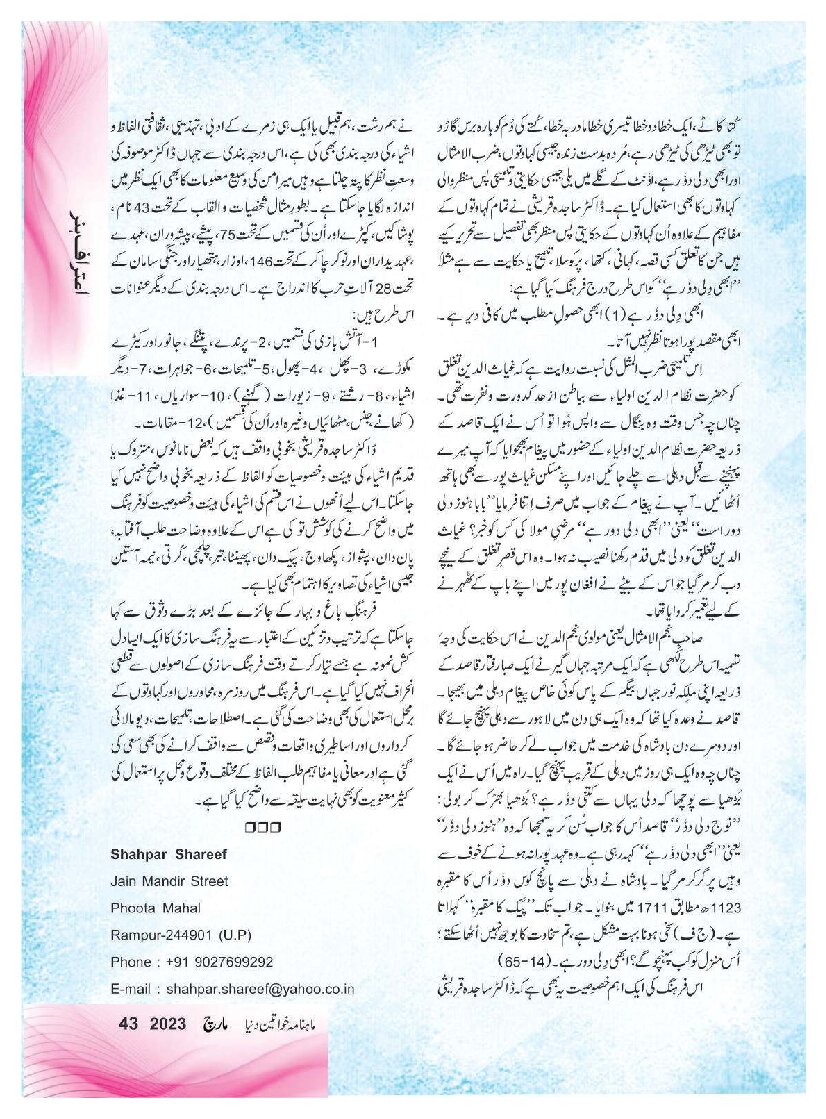 اعترافِ ہنر
کُتا کاٹے، ایک خطا دو خطا تیسری خطا مادر بہ خطا، کُتے کی دُم کو بارہ برس گاڑو
تو بھی ٹیڑھی کی ٹیڑھی رہے، مُردہ بدست زندہ جیسی کہاوتوں، ضرب الامثال
اور ابھی دلی دوٗر ہے، اونٹ کے گلے میں بلی جیسی حکایتی و تلمیحی پس منظر والی
کہاوتوں کا بھی استعمال کیا ہے۔ ڈاکٹر ساجدہ قریشی نے تمام کہاوتوں کے
مفاہیم کے علاوہ اُن کہاوتوں کے حکایتی پس منظر بھی تفصیل سے تحریر کیے
ہیں جن کا تعلق کسی قصہ، کہانی، کتھا، پرکوسلا، تلمیح یا حکایت سے ہے مثلاً
’’ابھی دِلی دوٗر ہے‘‘ کو اس طرح درج فرہنگ کیا گیا ہے:
ابھی دِلی دوٗر ہے (1) ابھی حصولِ مطلب میں کافی دیر ہے۔
ابھی مقصد پورا ہوتا نظر نہیں آتا۔
اِس تلمیحی ضرب المثل کی نسبت روایت ہے کہ غیاث الدین تغلق
کو حضرت نظام الدین اولیاء سے بباطن از حد کدورت و نفرت تھی۔
چناں چہ جس وقت وہ بنگال سے واپس ہوا تو اُس نے ایک قاصد کے
ذریعہ حضرت نظام الدین اولیاء کے حضور میں پیغام بھجوایا کہ آپ میرے
پہنچنے سے قبل دہلی سے چلے جائیں اور اپنے مسکن غیاث پور سے بھی ہاتھ
اُٹھائیں۔ آپ نے پیغام کے جواب میں صرف اتنا فرمایا ’’بابا ہنوز دلی
دور است‘‘ یعنی ’’ابھی دلی دور ہے‘‘ مرضیِ مولا کی کس کو خبر؟ غیاث
الدین تغلق کو دلی میں قدم رکھنا نصیب نہ ہوا۔ وہ اس قصرِ تغلق کے نیچے
دب کر مر گیا جو اس کے بیٹے نے افغان پور میں اپنے باپ کے ٹھہرنے
کے لیے تعمیر کروایا تھا۔
صاحبِ نجم الامثال یعنی مولوی نجم الدین نے اس حکایت کی وجۂ
تسمیہ اس طرح لکھی ہے کہ ایک مرتبہ جہاں گیر نے ایک صبا رفتار قاصد کے
ذریعہ اپنی ملکہ نور جہاں بیگم کے پاس کوئی خاص پیغام دہلی میں بھیجا۔
قاصد نے وعدہ کیا تھا کہ وہ ایک ہی دن میں لاہور سے دہلی پہنچ جائے گا
اور دوسرے دن بادشاہ کی خدمت میں جواب لے کر حاضر ہو جائے گا۔
چناں چہ وہ ایک ہی روز میں دہلی کے قریب پہنچ گیا۔ راہ میں اُس نے ایک
بُڑھیا سے پوچھا کہ دلی یہاں سے کتنی دوٗر ہے؟ بُڑھیا بھڑک کر بولی:
’’نوج دلی دوٗر‘‘ قاصد اُس کا جواب سُن کر یہ سمجھا کہ وہ ’’ہنوز دلی دوٗر‘‘
یعنی ’’ابھی دلی دوٗر ہے‘‘ کہہ رہی ہے۔ وہ عہد پورا نہ ہونے کے خوف سے
وہیں پر گر کر مر گیا۔ بادشاہ نے دہلی سے پانچ کوس دوٗر اُس کا مقبرہ
1123ھ مطابق 1711 میں بنوایا۔ جو اب تک ’’پیک کا مقبرہ‘‘ کہلاتا
ہے۔ (ج ف) سخی ہونا بہت مشکل ہے، تم سخاوت کا بوجھ نہیں اُٹھا سکتے؛
اُس منزل کو کب پہنچو گے؟ ابھی دِلی دور ہے۔ (14-65)
اس فرہنگ کی ایک اہم خصوصیت یہ بھی ہے کہ ڈاکٹر ساجدہ قریشی
نے ہم رشت، ہم قبیل یا ایک ہی زمرے کے ادبی، تہذیبی، ثقافتی الفاظ و
اشیاء کی درجہ بندی بھی کی ہے، اس درجہ بندی سے جہاں ڈاکٹر موصوفہ کی
وسعتِ نظر کا پتہ چلتا ہے وہیں میر امن کی وسیع معلومات کا بھی ایک نظر میں
اندازہ لگایا جا سکتا ہے۔ بطورِ مثال شخصیات و القاب کے تحت 43 نام،
پوشاکیں، کپڑے اور اُن کی قسمیں کے تحت 75، پیشے، پیشہ وران، عہدے
، عہدیداران اور نوکر چاکر کے تحت 146، اوزار، ہتھیار اور جنگی سامان کے
تحت 28 آلاتِ حرب کا اندراج ہے۔ اس درجہ بندی کے دیگر عنوانات
اس طرح ہیں:
1- آتش بازی کی قسمیں، 2- پرندے، پتنگے، جانور اور کیڑے
مکوڑے، 3- پھل، 4- پھول، 5- تلمیحات، 6- جواہرات، 7- دیگر
اشیاء، 8- رشتے، 9- زیورات (گہنے)، 10- سواریاں، 11- غذا
(کھانے، جنس، مٹھائیاں وغیرہ اور اُن کی قسمیں)، 12- مقامات۔
ڈاکٹر ساجدہ قریشی بخوبی واقف ہیں کہ بعض نامانوس، متروک یا
قدیم اشیاء کی ہیئت و خصوصیات کو الفاظ کے ذریعہ بخوبی واضح نہیں کیا
جا سکتا۔ اس لیے اُنھوں نے اس قسم کی اشیاء کی ہیئت و خصوصیت کو فرہنگ
میں واضح کرنے کی کوشش تو کی ہے اس کے علاوہ وضاحت طلب آفتابہ،
پان دان، پشواز، پکھاوج، پیک دان، پھینٹا، تبر، چلمچی، کرتی، نیمہ آستین
جیسی اشیاء کی تصاویر کا اہتمام بھی کیا ہے۔
فرہنگِ باغ و بہار کے جائزے کے بعد بڑے وثوق سے کہا
جا سکتا ہے کہ ترتیب و تزئین کے اعتبار سے یہ فرہنگ سازی کا ایک ایسا دل
کش نمونہ ہے جسے تیار کرتے وقت فرہنگ سازی کے اصولوں سے قطعی
انحراف نہیں کیا گیا ہے۔ اس فرہنگ میں روزمرہ، محاوروں اور کہاوتوں کے
برمحل استعمال کی بھی وضاحت کی گئی ہے۔ اصطلاحات، تلمیحات، دیومالائی
کرداروں اور اساطیری واقعات و قصص سے واقف کرانے کی بھی سعی کی
گئی ہے اور معانی یا مفاہیم طلب الفاظ کے مختلف وقوع و محل پر استعمال کی
کثیر معنویت کو بھی نہایت سلیقہ سے واضح کیا گیا ہے۔
❒❒❒
Shahpar Shareef
Jain Mandir Street
Phoota Mahal
Rampur-244901 (U.P)
Phone : +91 9027699292
E-mail : shahpar.shareef@yahoo.co.in
ماہنامہ خواتین دنیا مارچ 2023 43